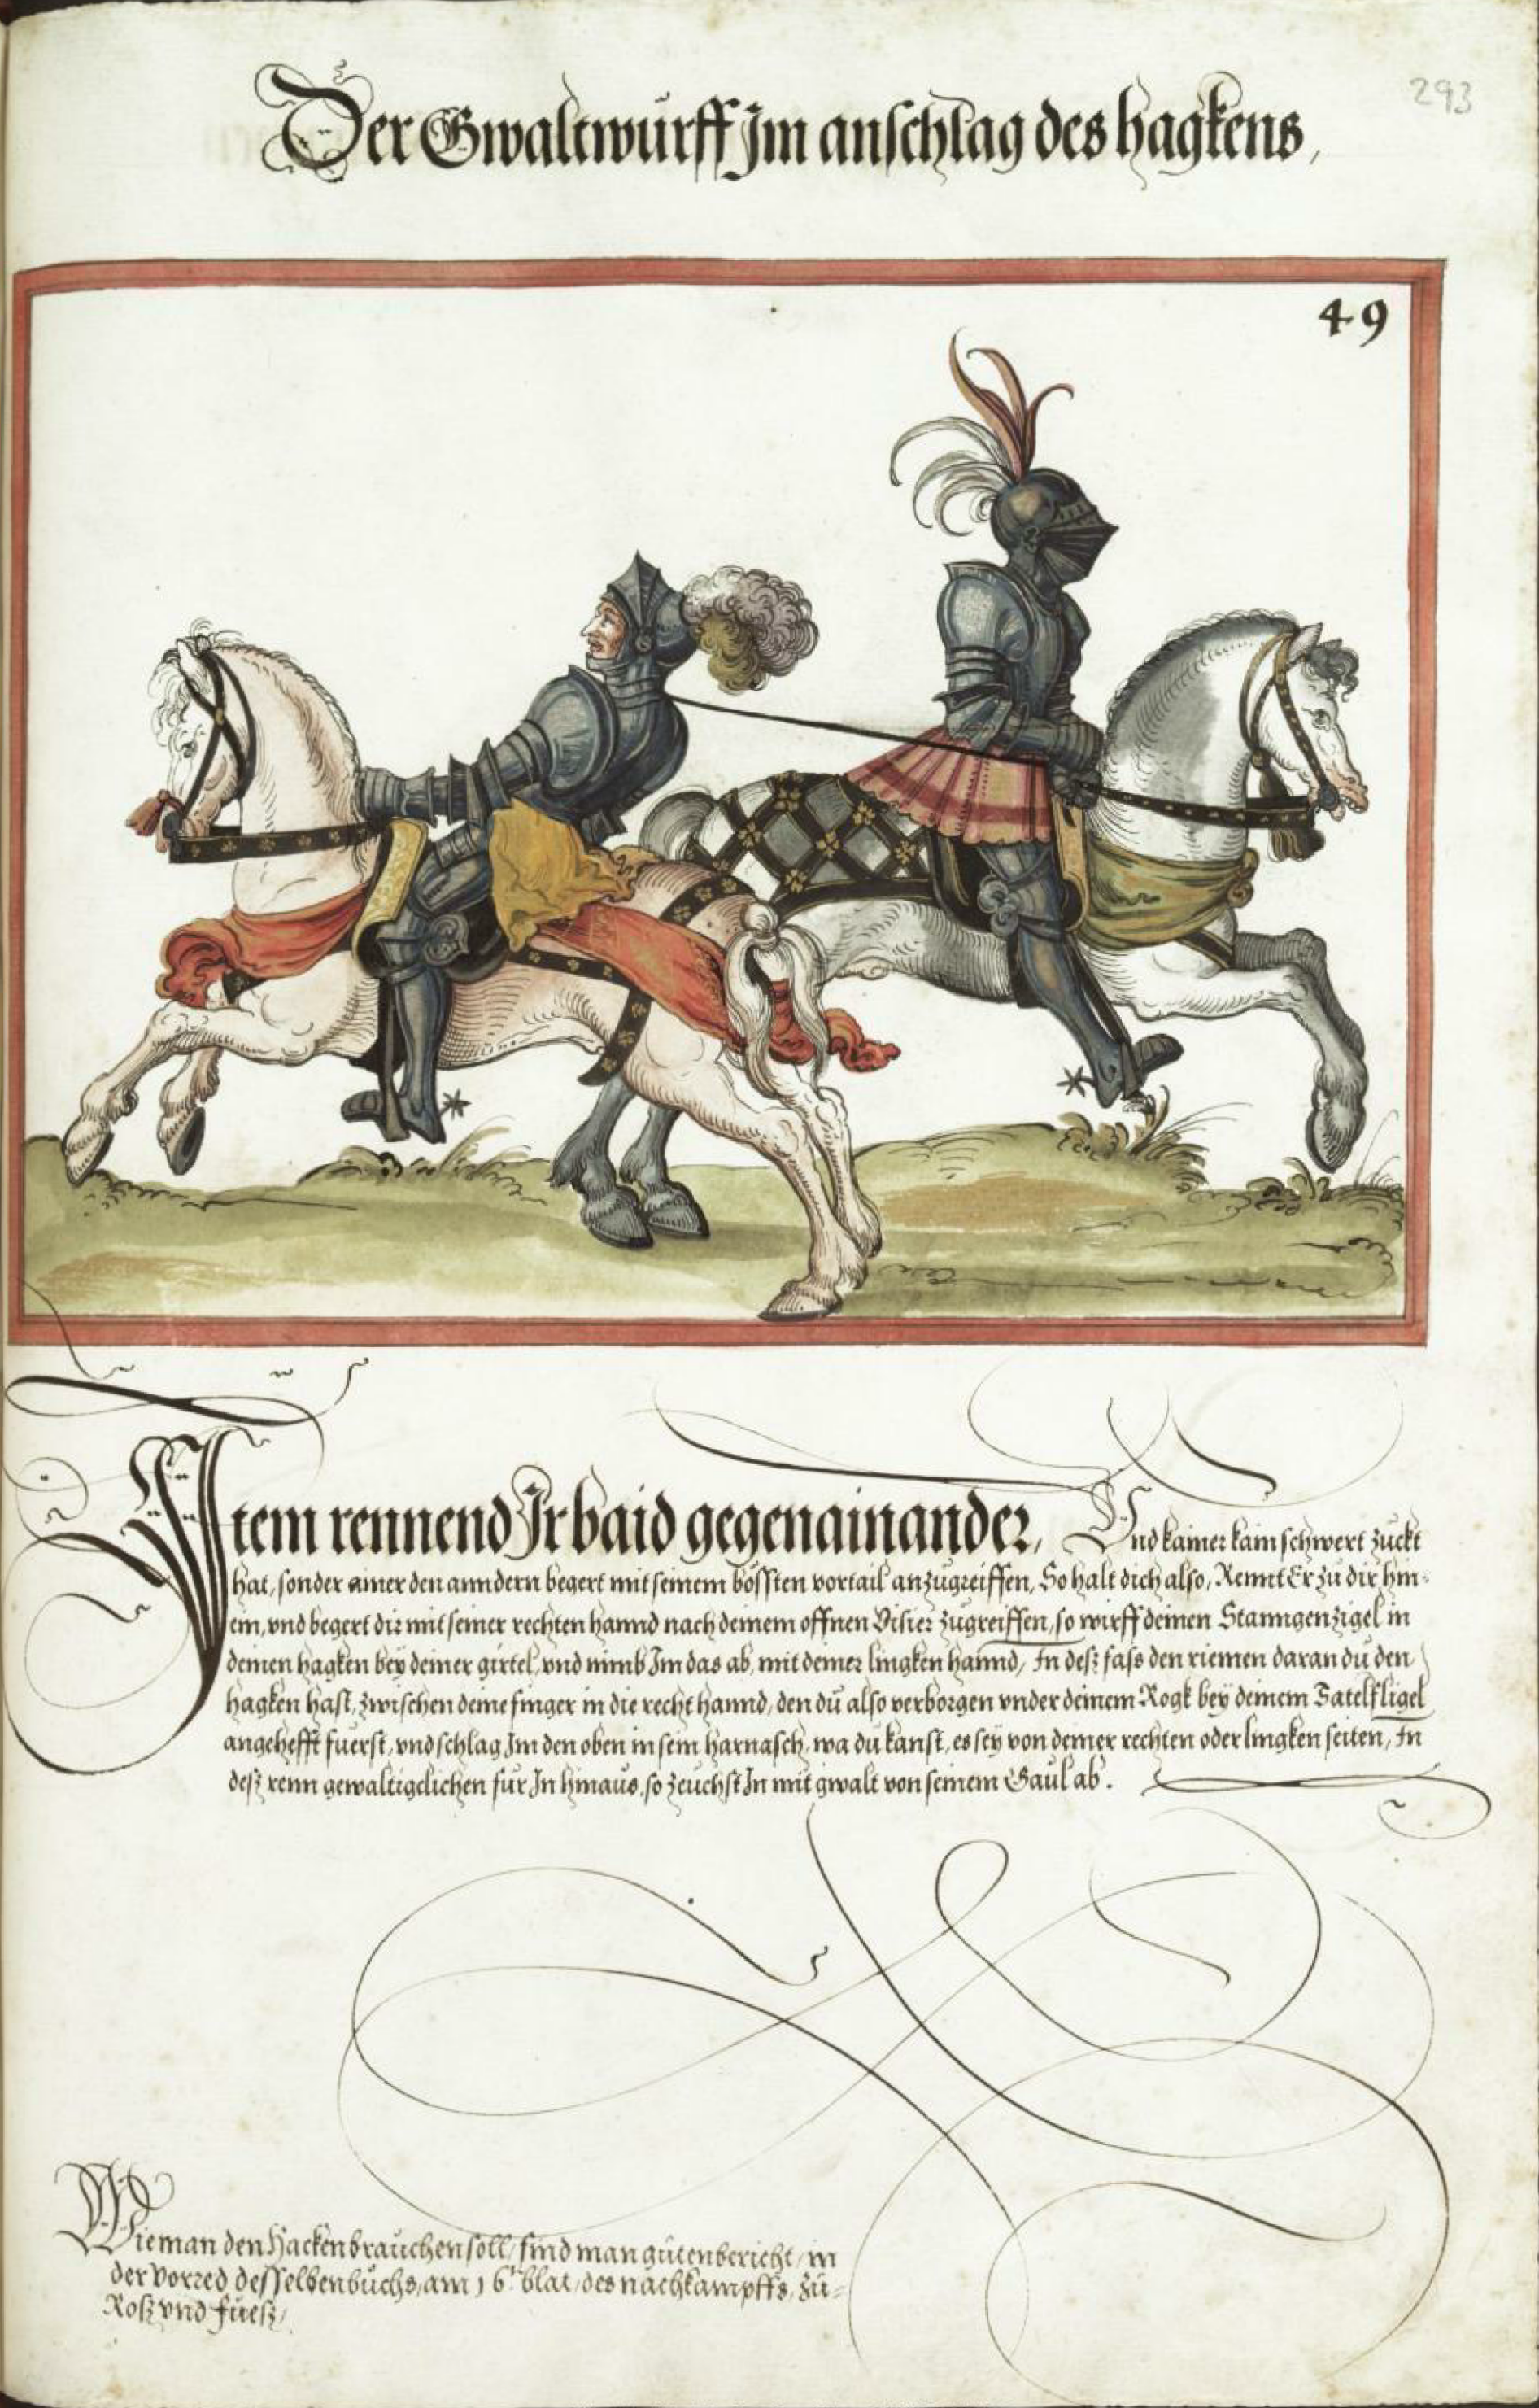 293
Der Gwaltwurff Jm anschlag des hagkens,
49
Item rennend Jr baid gegenainander, Vnd kainer kain schwert zuckt
hat, sonder ainer den anndern begert mit seinem bössten vortail anzugreiffen, So halt dich also, Rennt Er zu dir hin-
ein, vnd begert dir mit seiner rechten hannd nach deinem offnen Visier zugreiffen, so wirff deinen Stanngenzigel in
deinen hagken bey deiner girtel, vnd nimb Jm das ab, mit deiner lingken hannd, In desz fass den riemen daran du den
hagken hast, zwischen deine finger in die recht hannd, den du also verborgen vnder deinem Rogk bey deinem Satelfligel
angehefft fuerst, vnd schlag Jm den oben in sein harnasch, wa du kanst, es sey von deiner rechten oder lingken seiten, In
desz renn gewaltigclichen fur Jn hinaus, so zeuchst Jn mit gwalt von seinem Gaul ab.
Wie man den Hacken brauchen soll, find man guten bericht, in
der Vorred desselben buchs, am 16. blat, des nachkampffs, zu-
Rosz vnd fuesz,